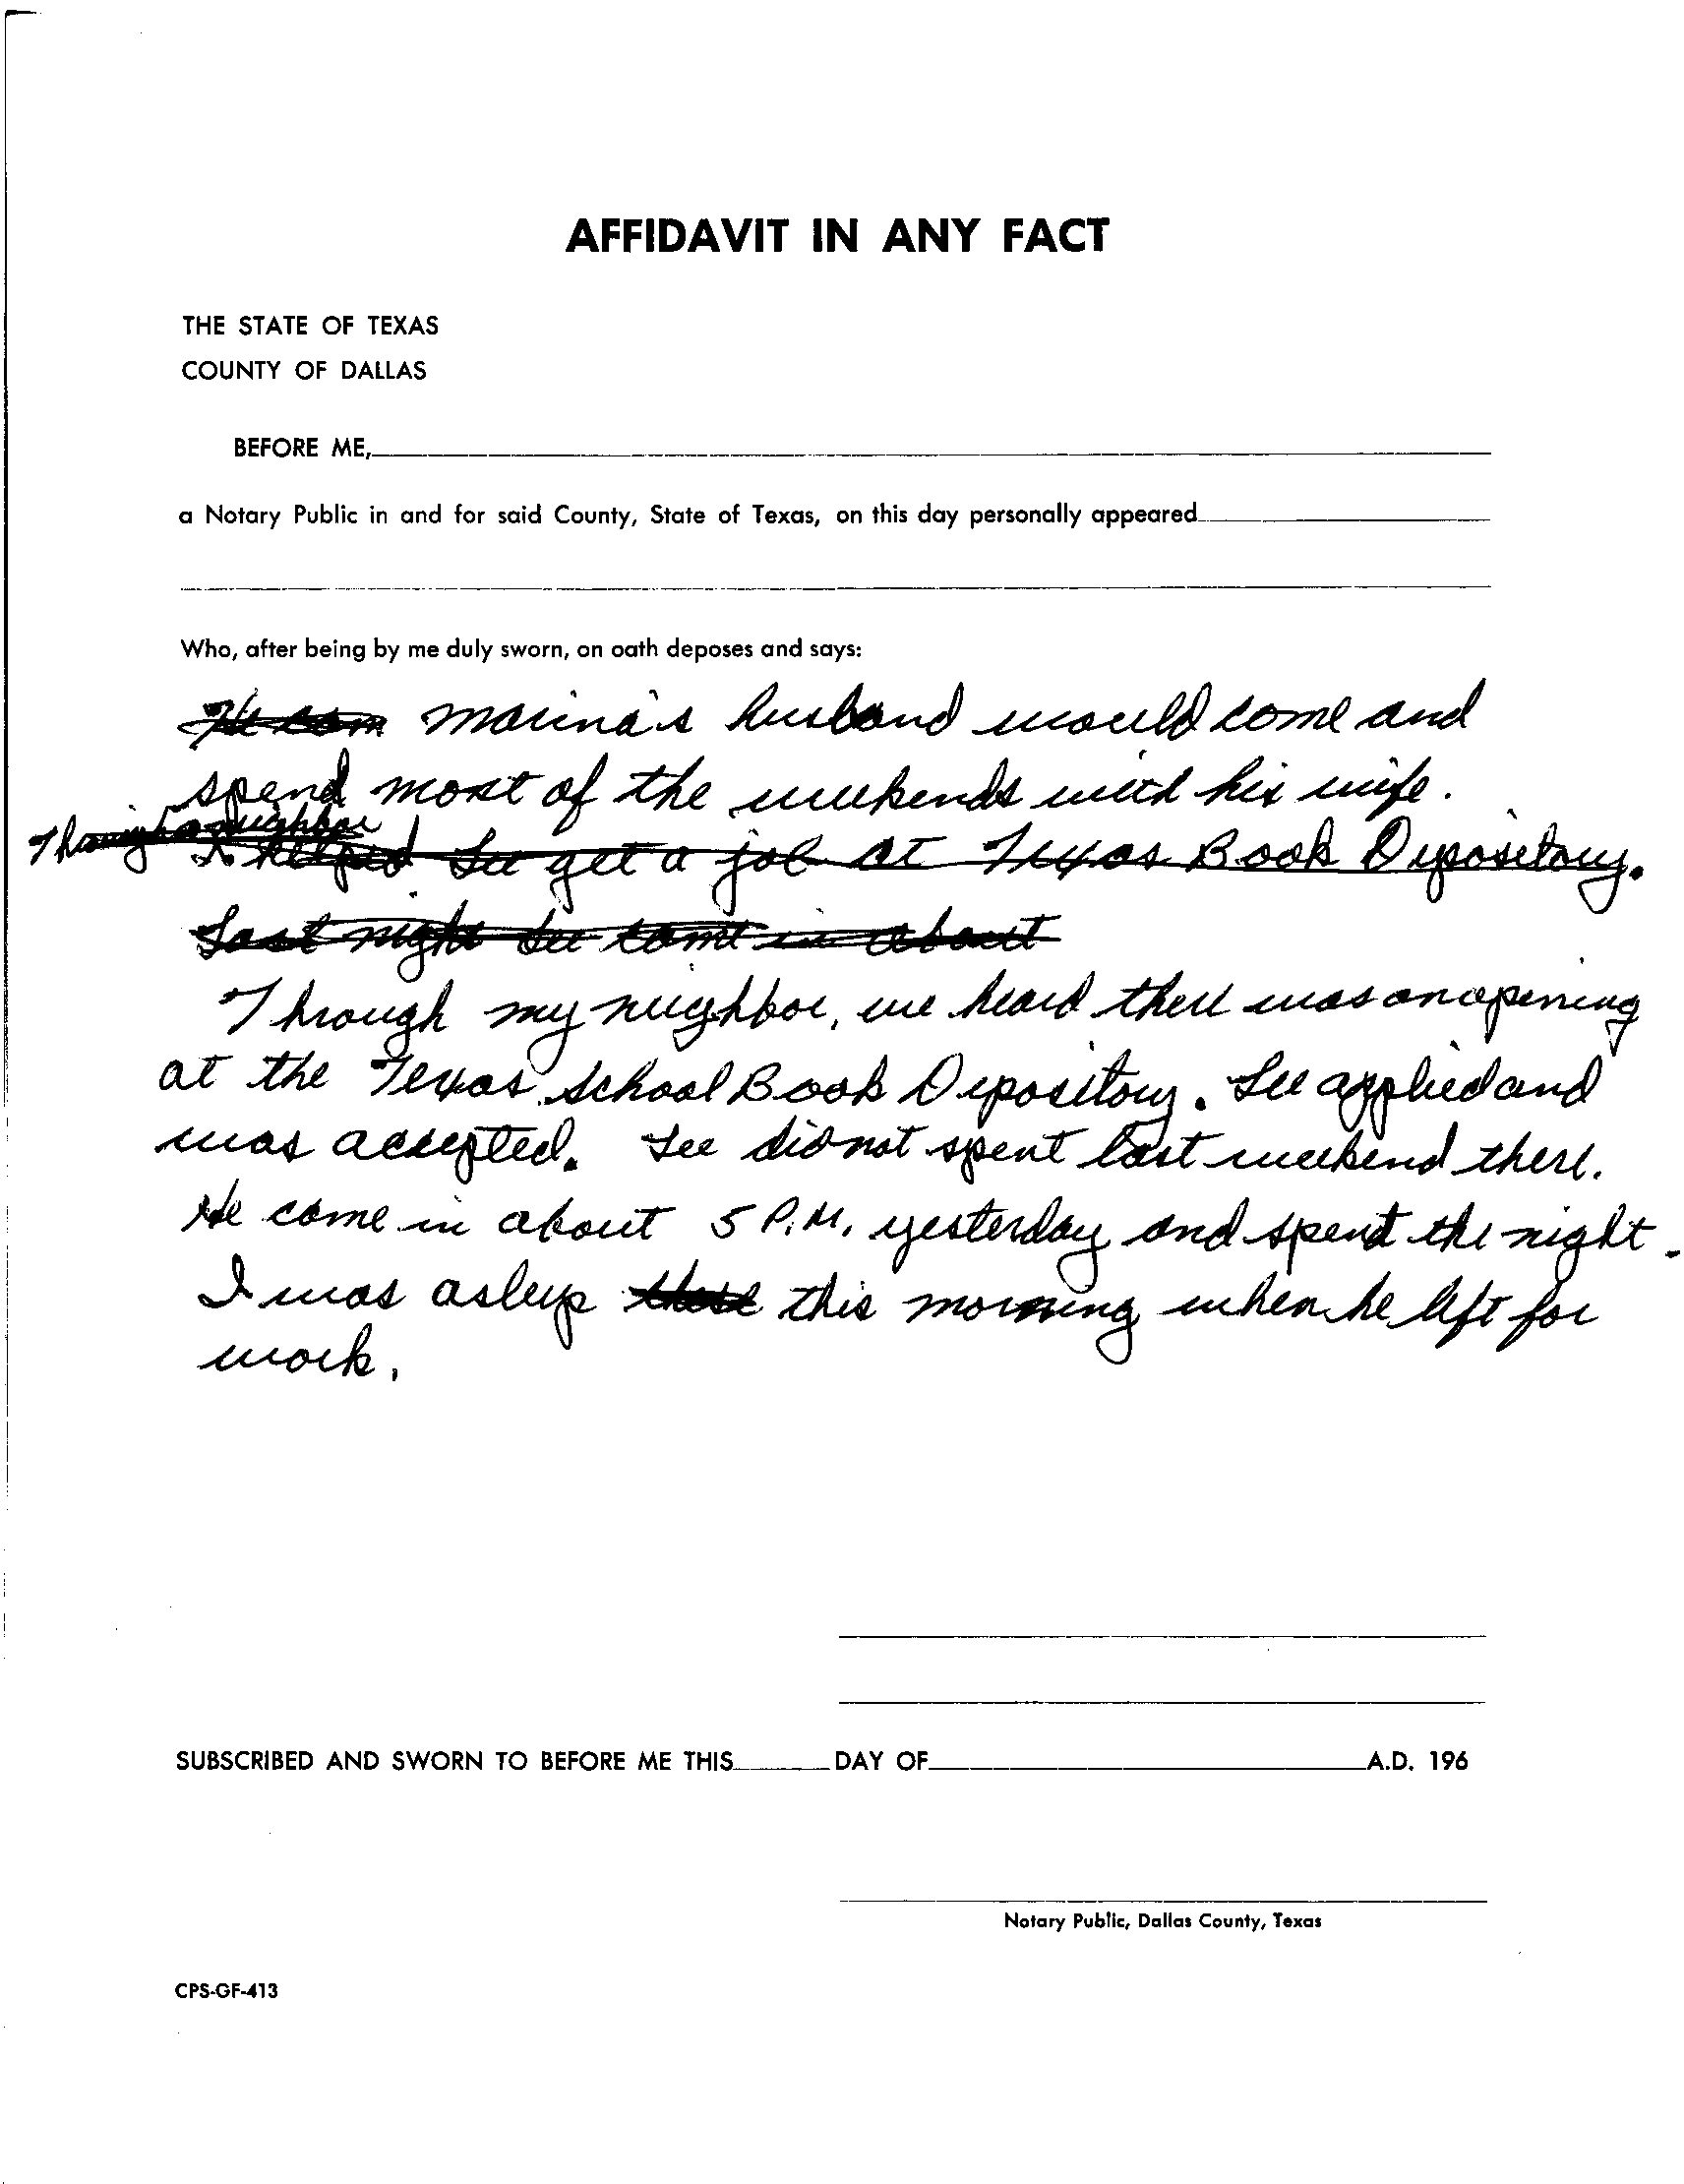 AFFIDAVIT IN ANY FACT
THE STATE OF TEXAS
COUNTY OF DALLAS
BEFORE ME,
a Notary Public in and for said County, State of Texas, on this day personally appeared
Who, after being by me duly sworn, on oath deposes and says:
He com Marina's husband would come and
spend most of the weekends with his wife.
Through a neighbor
I helped Lee get a job at Texas Book Depository.
Last night Lee came in about
Through my neighbor, we heard there was an opening
at the Texas School Book Depository. Lee applied and
was accepted. Lee did not spent last weekend there.
He came in about 5 P.M. yesterday and spent the night.
I was asleep this morning when he left for
work.
SUBSCRIBED AND SWORN TO BEFORE ME THIS DAY OF A.D. 196
Notary Public, Dallas County, Texas
CPS-GF-413